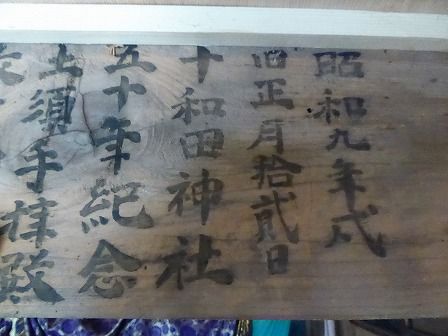 昭和九年戌
旧正月拾貳日
十和田神社
五十年紀念
上須手拝殿